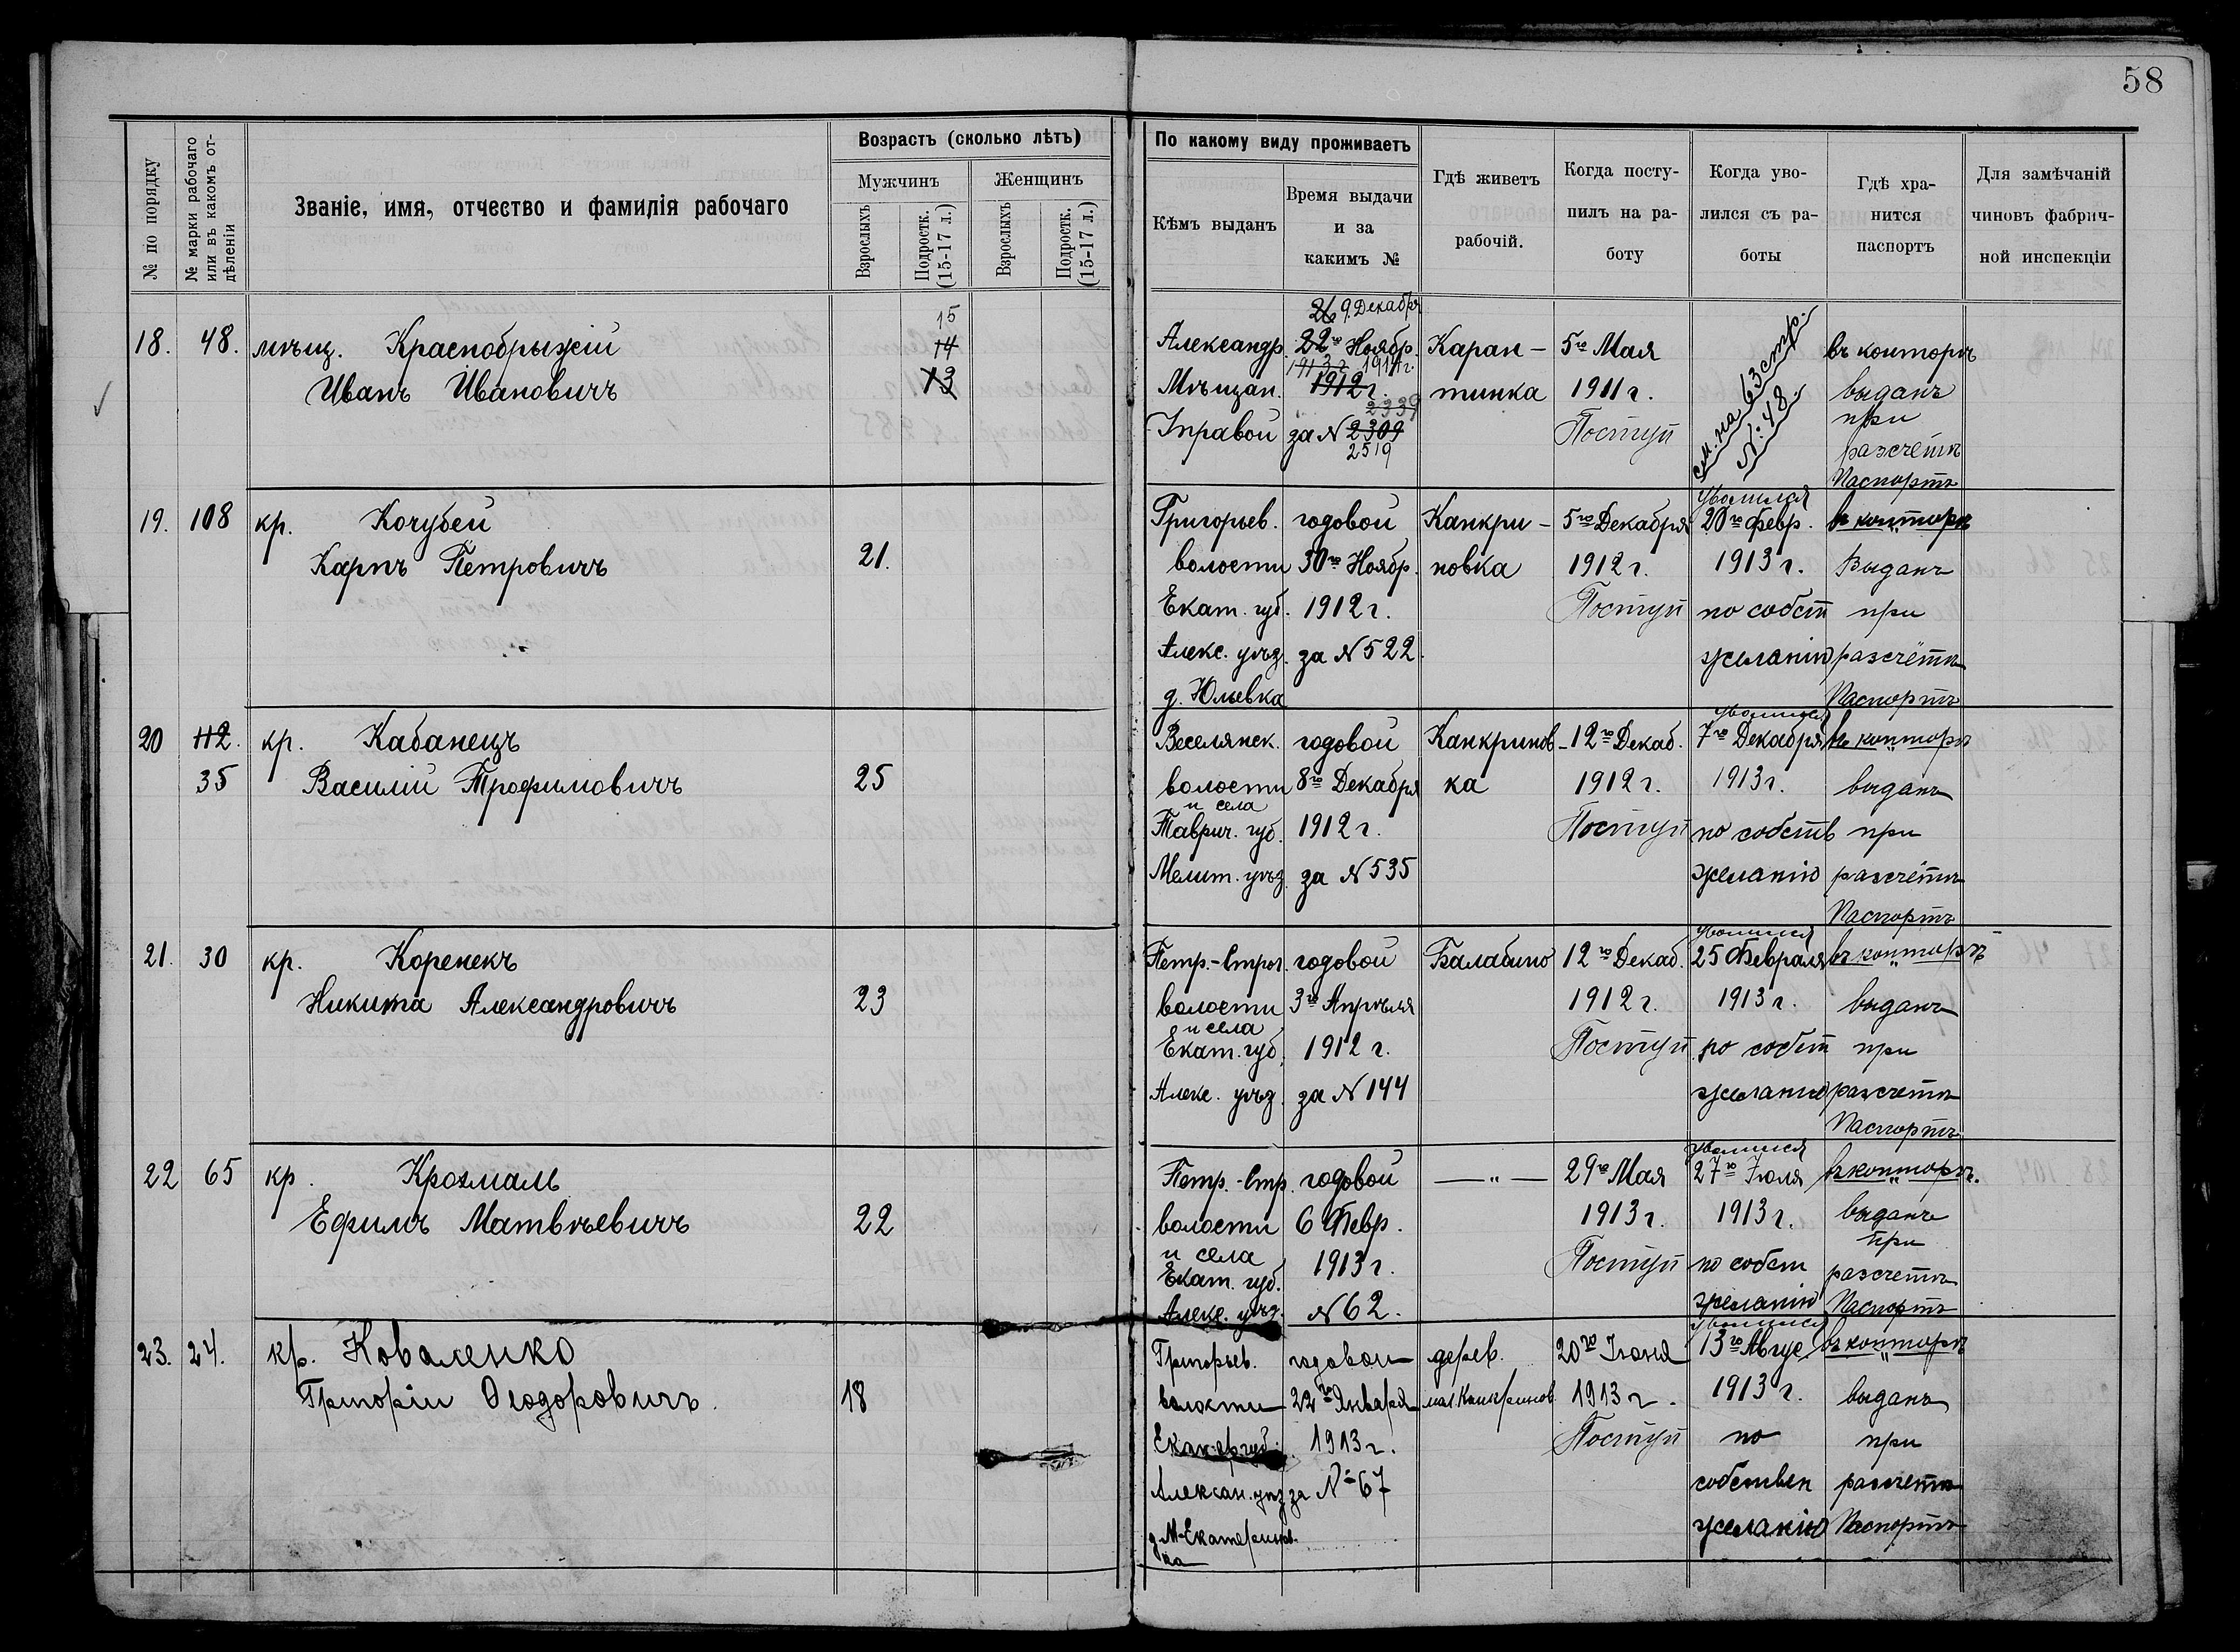 58
№ по порядку
№ марки рабочаго или въ какомъ отдѣленіи
Званіе, имя, отчество и фамилія рабочаго
Возрастъ (сколько лѣтъ)
Мужчинъ
Женщинъ
Взрослыхъ
Подростк. (15-17 л.)
Взрослыхъ
Подростк. (15-17 л.)
По какому виду проживаетъ
Кѣмъ выданъ
Время выдачи
и за
какимъ №
Гдѣ живетъ
рабочій.
Когда посту-
пилъ на ра-
боту
Когда уво-
лился съ ра-
боты
Гдѣ хра-
нится
паспортъ
Для замѣчаній
чиновъ фабрич-
ной инспекціи
18. 48. мѣщ. Краснобрыжій
Иванъ Ивановичъ
15
14
13
Александр.
Мѣщан.
Управой
9. Декабр
22го Ноябр.
1913 г. 1914 г.
1912 г.
2339
за № 2309
2519
Каран-
тинка
5го Мая
1911 г.
Поступ
см. на 63 стр.
№: 48.
въ конторѣ
выданъ
при
разсчётѣ
Паспортъ
19. 108 кр. Кочубей
Карпъ Петровичъ
21.
Григорьев.
волости
Екат. губ.
Алекс. уѣз.
д. Юльевка
годовой
30го Ноябр.
1912 г.
за № 522.
Канкри-
новка
5го Декабря
1912 г.
Поступ
Уволился
20го Февр.
1913 г.
по собст
желанію
въ конторѣ
Выданъ
при
разсчётѣ
Паспортъ
20 112. кр. Кабанецъ
35 Василій Трофимовичъ
25
Веселянск.
волости
и села
Таврич. губ.
Мелит. уѣз.
годовой
8го Декабря
1912 г.
за № 535
Канкринов-
ка
12го Декаб.
1912 г.
Поступ
уволился
7го Декабря
1913 г.
по собств
желанію
въ конторѣ
выданъ
при
разсчётѣ
Паспортъ
21. 30 кр. Коренекъ
Никита Александровичъ
23
Петр.-Строг.
волости
и села
Екат. губ.
Алекс. уѣз.
годовой
3го Апрѣля
1912 г.
за № 144
Балабино
12го Декаб.
1912 г.
Поступ
уволился
25 Февраля
1913 г.
по собст
желанію
въ конторѣ
выданъ
при
разсчетѣ
Паспортъ
22 65 кр. Крохмаль
Ефимъ Матвѣевичъ
22
Петр.-Стр.
волости
и села
Екат. губ.
Алекс. уѣз.
годовой
6 Февр.
1913 г.
№ 62.
— " —
29го Мая
1913 г.
Поступ
уволился
27го Іюля
1913 г.
по собст
желанію
въ конторѣ.
выданъ
при
разсчетѣ
Паспортъ
23. 24. кр. Коваленко
Григорій Ѳеодоровичъ
18
Григорьев.
волости
Екатер. губ.
Алексан. уѣз
д. М-Екатеринов-
ка
годовой
22го Января
1913 г.
за № 67
дерев.
мал. Канкринов.
20го Іюня
1913 г.
Поступ
уволился
13го Авгус.
1913 г.
по
собствен
желанію
въ конторѣ
выданъ
при
разсчетѣ
Паспортъ